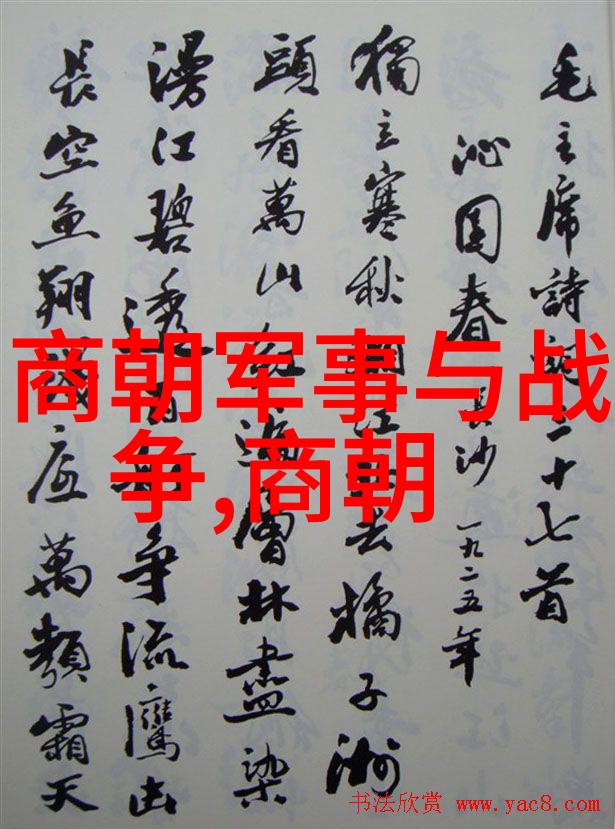 毛主席詩詞三十七首
沁園春 長沙 一九二五年
獨立寒秋湘江北去橘子洲
頭看萬山紅遍層林盡染
漫江碧透百舸争流鷹击
長空魚翔淺底萬類霜天
商朝军事与战
争,商朝
书法欣赏 www.yac8.com